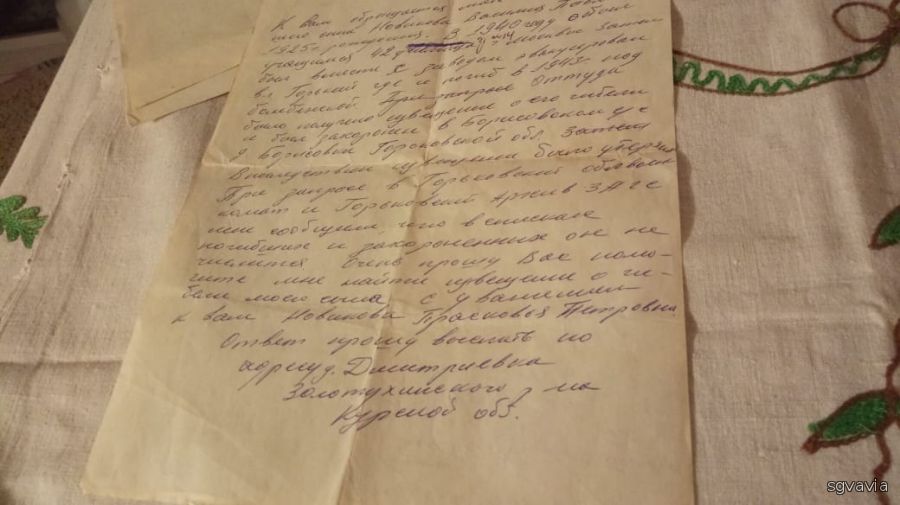 К вам обращается
сына Новикова Василия
1925 г рождения. В 1940 году был
учащимся 42 Москвы затем
был вместе с заводом эвакуирован
в г. Горький где и погиб в 1943 г под
бомбёжкой. При запросе оттуда
было получено извещение о его гибели
и был захоронен в Борисовском с/с
д Борисовка Горьковской обл. Затем
Впоследствии извещение было утеряно
При запросе в Горьковский облвоен
комат и Горьковский Архив ЗАГС
мне сообщили, что в списках
погибших и захороненных он не
числится Очень прошу Вас помо-
гите мне найти извещение о ги-
бели моего сына с уважением
к вам Новикова Прасковья Петровна
Ответ прошу выслать по
адресу д. Дмитриевка
Золотухинского р-на
Курской обл.
sgvavia